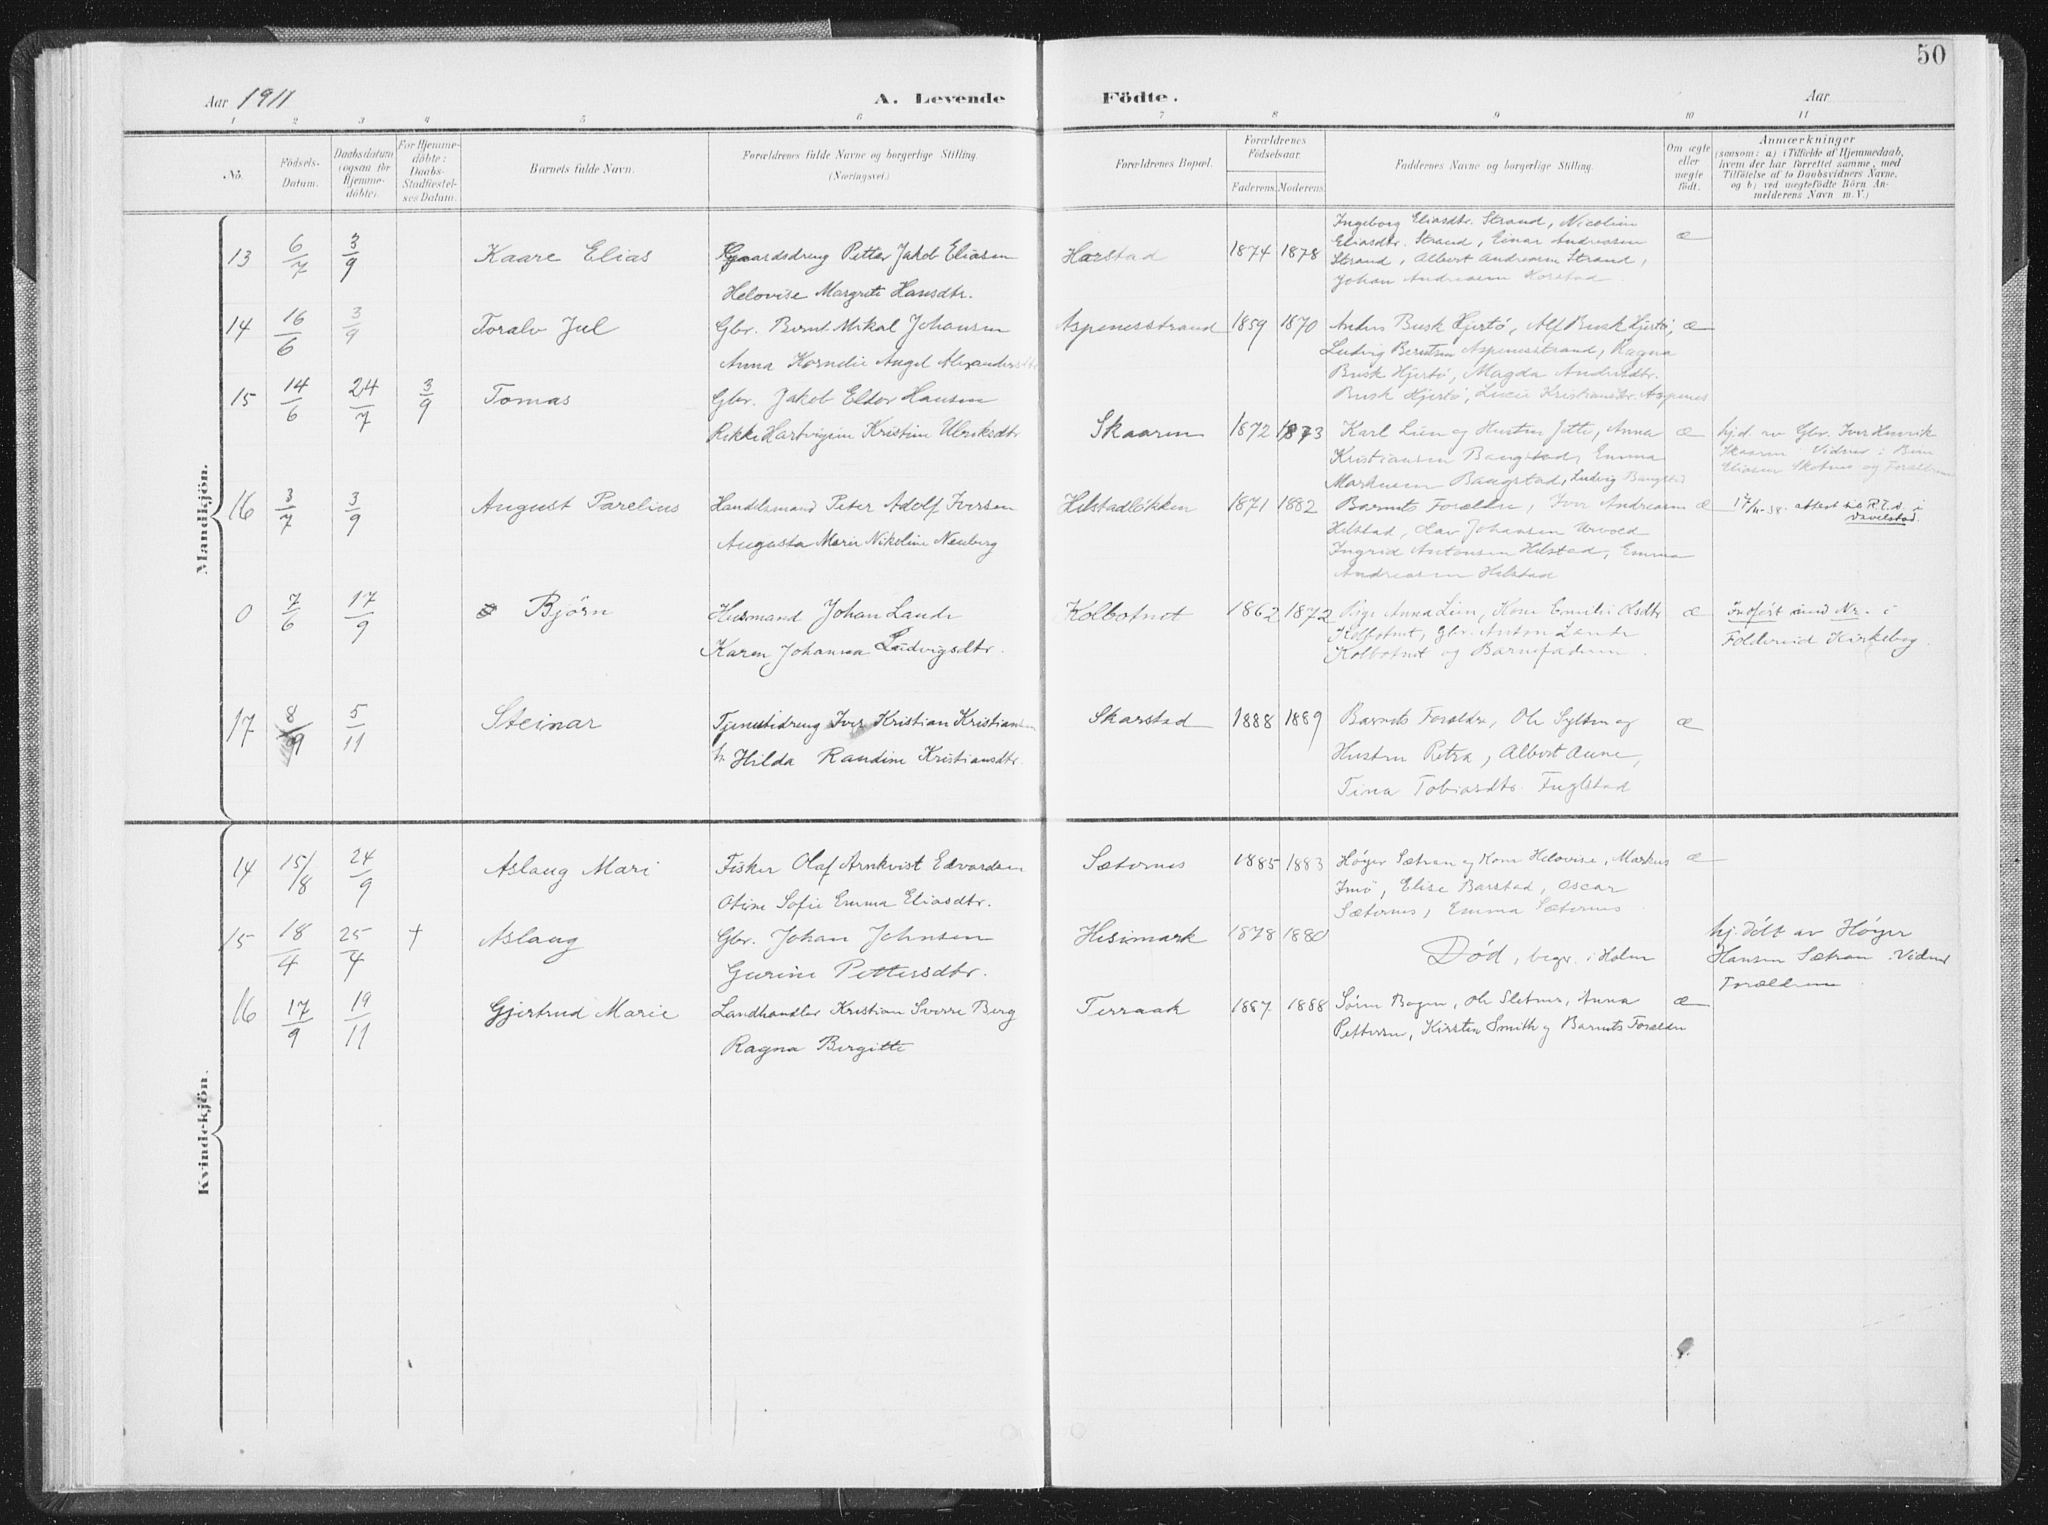 50
Aar 1911
A. Levende Födte.
Aar
1 2 3 4 5 6 7 8 9 10 11
No.
Födsels-Datum.
Daabsdatum (ogsaa for Hjemme-döbte).
For Hjemme-döbte: Daabs-Stadfæstel-ses Datum.
Barnets fulde Navn.
Forældrenes fulde Navne og borgerlige Stilling.
(Næringsvei.)
Forældrenes Bopæl.
Forældrenes Födselsaar.
Faderens. Moderens.
Faddernes Navne og borgerlige Stilling.
Om ægte eller uægte födt.
Anmærkninger
(saasom: a) i Tilfælde af Hjemmedaab,
hvem der har forrettet samme, med
Tilföielse af to Daabsvidners Navne,
og b) ved uægtefödte Börn An-
melderens Navn m. V.)
Mandkjön.
13 6/7 3/9 Kaare Elias
Gaardsdreng Petter Jakob Eliasen
Helovise Margrete Hansdtr.
Harstad 1874 1878
Ingeborg Eliasdtr. Strand, Nicoline
Eliasdtr. Strand, Einar Andreasen
Strand, Albert Andreasen Strand,
Johan Andreasen Horstad
æ
14 16/6 3/9 Toralv Jul
Gbr. Bernt Mikal Johansen
Anna Kornelie Angel Alexandersdtr
Aspenesstrand 1859 1870
Anders Busk Hjertø, Alf Busk Hjertø,
Ludvig Berntsen Aspenesstrand, Ragna
Busk Hjertø, Magda Andersdtr.
Busk Hjertø, Lucie Kristiansdtr. Aspenes
æ
15 14/6 24/7 3/9 Tomas
Gbr. Jakob Eltor Hansen
Rikke Hartvigine Kristine Ulriksdtr
Skaaren 1872 1873
Karl Lien og Hustru Jette, Anna
Kristiansen Bangstad, Emma
Markusen Bangstad, Ludvig Bangstad
æ
hj.d. av Gbr. Iver Henrik
Skaaren Vidner: Bern
Eliasen Skotnes og Forældrene
16 3/7 3/9 August Parelius
Handelsmand Peter Adolf Iversen
Augusta Marie Nikoline Neuberg
Hilstadløkken 1871 1882
Barnets Forældre, Iver Andreasen
Hilstad, Olav Johansen Urvold
Ingrid Antonsen Hilstad, Emma
Andreasen Hilstad
æ
17/11-38. attest til R.T.V. i
Davelstad.
0 7/6 17/9 Bjørn
Husmand Johan Lande
Karen Johanna Ludvigsdtr.
Kolbotnet 1862 1872
Pige Anna Lien, Kone Emilie Olsdtr
Kolbotnet, Gbr. Anton Lande
Kolbotnet og Barnefaderen.
æ
Indført med Nr. i
Foldereid Kirkebog.
17 8/9 5/11 Steinar
Tjenestedreng Iver Kristian Kristiansen
h. Hilda Randine Kristiansdtr.
Skarstad 1888 1889
Barnets Forældre, Ole Sylten og
Hustru Petra, Albert Aune,
Tina Tobiasdtr. Fuglstad
æ
Kvindekjön.
14 15/8 24/9 Aslaug Mari
Fisker Olaf Arnkvist Edvardsen
Otine Sofie Emma Eliasdtr.
Sæternes 1885 1883
Høyer Sætran og Kone Helovise, Markus
Imø, Elise Barstad, Oscar
Sæternes, Emma Sæternes
æ
15 18/4 25/4 † Aslaug
Gbr. Johan Johnsen
Gurine Pettersdtr.
Hesimark 1878 1880
Død, begr. i Holm
hj. døbt av Høyer
Hansen Sætran. Vidner
Forældrene
16 17/9 19/11 Gjertrud Marie
Landhandler Kristian Sverre Berg
Ragna Birgitte
Terraak 1887 1888
Søren Bogen, Ole Sletner, Anna
Pettersen, Kirsten Smith og Barnets Forældre
æ